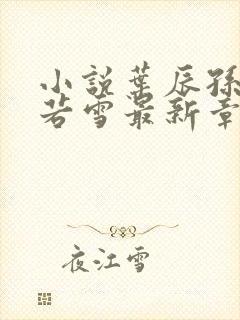 小説葉辰孫
若雪最新章
夜江雪